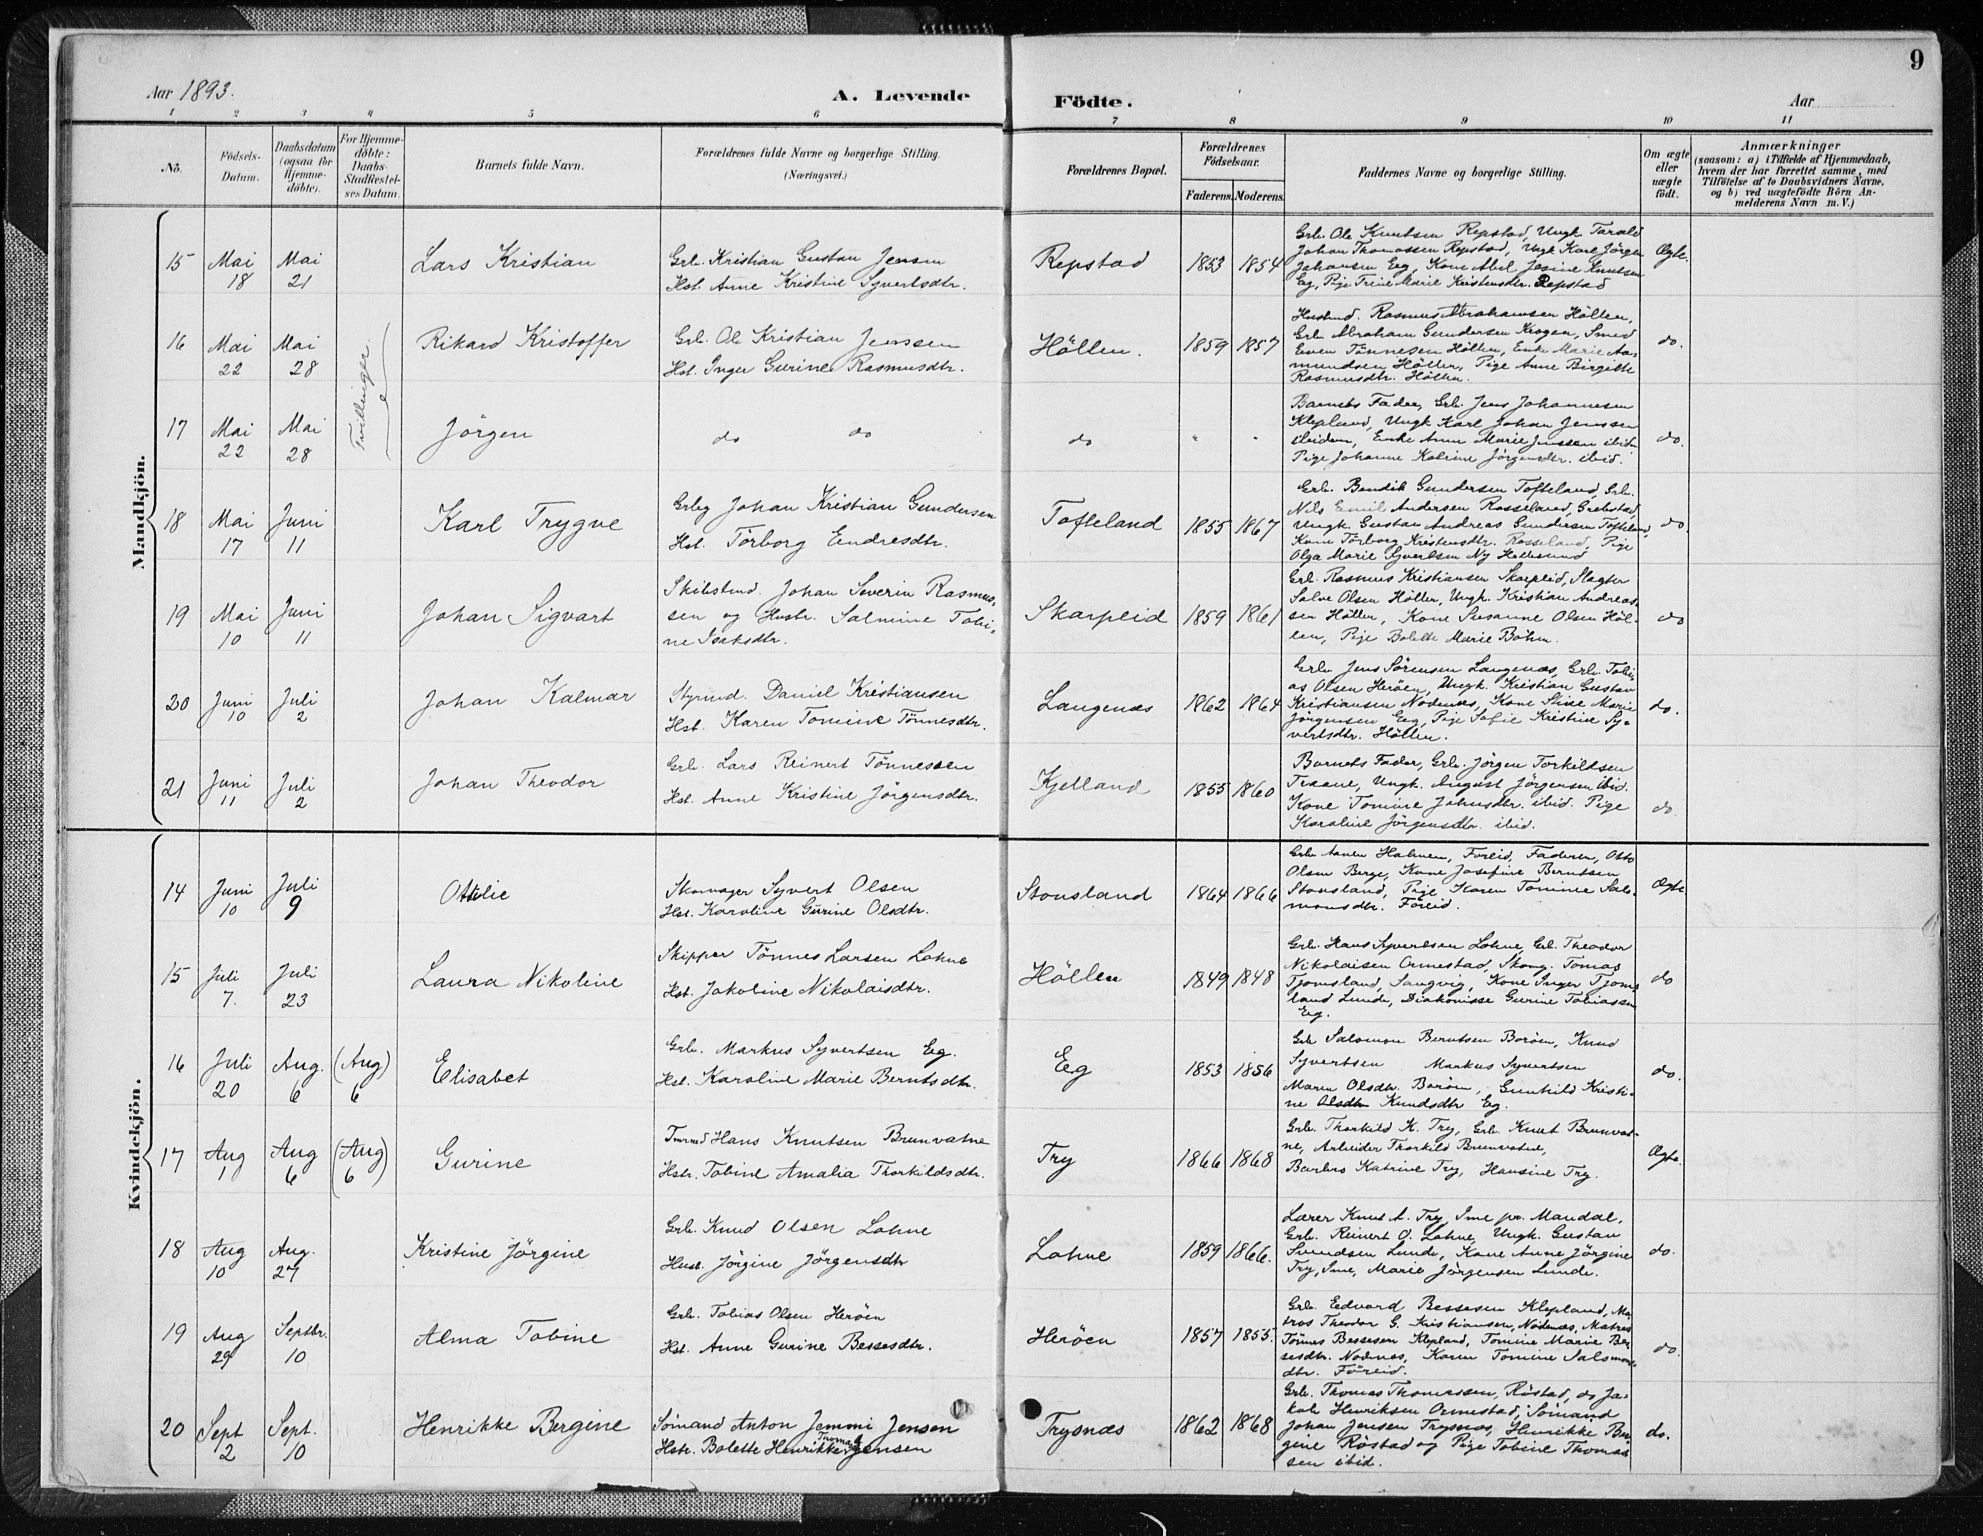 9
Aar 1893.
A. Levende
Födte.
Aar
1 2 3 4 5 6 7 8 9 10 11
No.
Födsels-Datum.
Daabsdatum (ogsaa for Hjemme-döbte).
For Hjemme-döbte: Daabs-Stadfæstelses Datum.
Barnets fulde Navn.
Forældrenes fulde Navne og borgerlige Stilling. (Næringsvei.)
Forældrenes Bopæl.
Forældrenes Födselsaar.
Faderens. Moderens.
Faddernes Navne og borgerlige Stilling.
Om ægte eller uægte födt.
Anmærkninger
(saasom: a) i Tilfælde af Hjemmedaab, hvem der har forrettet samme, med Tilföielse af to Daabsvidners Navne, og b) ved uægtefödte Börn Anmelderens Navn m. V.)
Mandkjön.
15 Mai 18 Mai 21 Lars Kristian
Grb. Kristian Gustav Jensen
Hst. Anne Kristine Syvertsdtr.
Repstad 1853 1854
Grb. Ole Knutsen Repstad, Ungk. Tarald
Johan Thomassen Repstad, Ungk Karl Jörgen
Johansen Eeg, Kone Abel Josine Knutsen
Eg, Pige Trine Marie Kristensdtr. Repstad
Ægte.
16 Mai 22 Mai 28 Tvillinger Rikard Kristoffer
Grb. Ole Kristian Jenssen
Hst. Inger Gurine Rasmusdtr.
Höllen. 1859 1857
Husmd. Rasmus Abrahamsen Höllen,
Grb. Abraham Gundersen Krogen, Smed
Even Tönnesen Höllen, Enke Marie Aa-
mundsen Höllen, Pige Anne Birgitte
Rasmusdtr. Höllen.
do.
17 Mai 22 Mai 28 Jörgen
do do
do " "
Barnets Fader, Grb. Jens Johannesen
Klepland, Ungk. Karl Johan Jenssen
ibidem, Enke Anne Marie Jenssen ibid.
Pige Johanne Katrine Jörgensdtr. ibid.
do.
18 Mai 17 Juni 11 Karl Trygve
Grbg Johan Kristian Gundersen
Hst. Törborg Endresdtr.
Tofteland 1855 1867
Grb. Bendik Gundersen Tofteland, Grb.
Nils Emil Andersen Rosseland, Grebstad,
Ungk. Gustav Andreas Gundersen Tofteland,
Kone Törborg Kristensdtr. Rosseland, Pige
Olga Marie Syvertsen Ny Hellesund
do
19 Mai 10 Juni 11 Johan Sigvart
Skibstmd. Johan Severin Rasmus-
sen og Hustr. Salmine Tobi-
ne Isaksdtr.
Skarpeid 1859 1861
Grb. Rasmus Kristiansen Skarpeid, Slagter
Salve Olsen Höllen, Ungk. Kristian Andreas-
sen Höllen, Kone Susanne Olsen Höl-
len, Pige Bolette Marie Böhm.
do
20 Juni 10 Juli 2 Johan Kalmar
Styrmd. Daniel Kristiansen
Hst. Karen Tomine Tönnesdtr.
Langenæs 1862 1864
Grb. Jens Sörensen Langenæs, Grb Tobi-
as Olsen Heröen, Ungk. Kristian Gustav
Kristiansen Nodenæs, Kone Stine Marie
Jörgensen Eeg, Pige Sofie Kristine Sy-
vertsdtr. Höllen.
do.
21 Juni 11 Juli 2 Johan Theodor
Grb. Lars Reinert Tönnessen
Hst. Anne Kristine Jörgensdtr.
Kjelland 1855 1860
Barnets Fader, Grb. Jörgen Torkildsen
Traane, Ungk. August Jörgensen ibid.
Kone Tomine Johnsdtr. ibid. Pige
Karoline Jörgensdtr ibid.
do
Kvindekjön.
14 Juni 10 Juli 9 Ottilie
Skomager Syvert Olsen
Hst. Karoline Gurine Olsdtr.
Stousland 1864 1866
Grb. Aanen Halven, Foreid, Faderen, Otto
Olsen Berge, Kone Josefine Berntsen
Stousland, Pige Karen Tomine Salo-
monsdtr. Föreid.
Ægte
15 Juli 7. Juli 23 Laura Nikoline
Skipper Tönnes Larsen Lohne
Hst. Jakoline Nikolaisdtr.
Höllen 1849 1848
Grb. Hans Syvertsen Lohne, Grb. Theodor
Nikolaisen Ormestad, Skomg. Tomas
Tjomsland, Langvig, Kone Inger Tjoms-
land Lunde, Diakonisse Gurine Tobiassen
Eg.
do
16 Juli 20 Aug. 6 (Aug 6) Elisabet
Grb. Markus Syvertsen Eg.
Hst. Karoline Marie Berntsdtr.
Eeg 1853 1856
Grb Salomon Berntsen Boröen, Knud
Syvertsen Markus Syvertsen
Maren Olsdtr. Boröen, Gunhild Kristi-
ne Olsdtr Knudsdtr Eg.
do.
17 Aug 1 Aug 6 (Aug 6) Gurine
Tmrmd Hans Knutsen Brunvatne
Hstr. Tobine Amalia Thorkildsdtr.
Try 1866 1868
Grb. Thorkild K. Try, Grb. Knut Brunvat-
ne, Arbeider Thorkild Brunvatne,
Barbro Katrine Try, Hansine Try.
Ægte.
18 Aug 10 Aug. 27 Kristine Jörgine
Grb. Knud Olsen Lohne
Hust. Jörgine Jörgensdtr
Lohne 1859 1866.
Lærer Knut A. Try, Ime pr. Mandal,
Grb. Reinert O. Lohne, Ungk. Gustav
Svendsen Lunde, Kone Anne Jörgine
Try, Ime, Marie Jörgensen Lunde.
do.
19 Aug 29 Septbr. 10 Alma Tobine
Grb. Tobias Olsen Heröen
Hst. Anne Gurine Bessesdtr.
Heröen 1857 1855.
Grb. Edvard Bessesen Klepland, Ma-
tros Theodor G. Kristiansen, Nodenæs, Matros
Tönnes Bessesen Klepland, Tomine Marie Bes-
sesdtr. Nodnes, Karen Tomine Salomons-
dtr. Föreid.
do.
20 Sept 2 Sept. 10 Henrikke Bergine
Sömand Anton Jommi Jensen
Hstr. Bolette Henrikke Thomas. Jensen
Trysnæs 1862 1868
Grb. Thomas Thomassen, Röstad, do Ja-
kob Henriksen Ormestad, Sömand
Johan Jensen Trysnæs, Henrikke Ber-
gine Röstad og Pige Tobine Thomas-
sen ibid.
do.